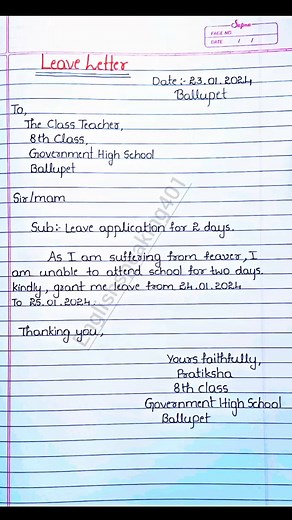 Sujan
PAGE NO.
DATE / /
Leave Letter
Date:- 23.01.2024
Ballupet
To,
The Class Teacher,
8th Class,
Government High School
Ballupet
Sir/mam
Sub:- Leave application for 2 days.
As I am suffering from feaver, I
am unable to attend school for two days.
kindly, grant me leave from 24.01.2024
To 25.01.2024.
Thanking you,
Yours faithfully,
Pratiksha
8th class
Government High School
Ballupet
Englishspeaking401